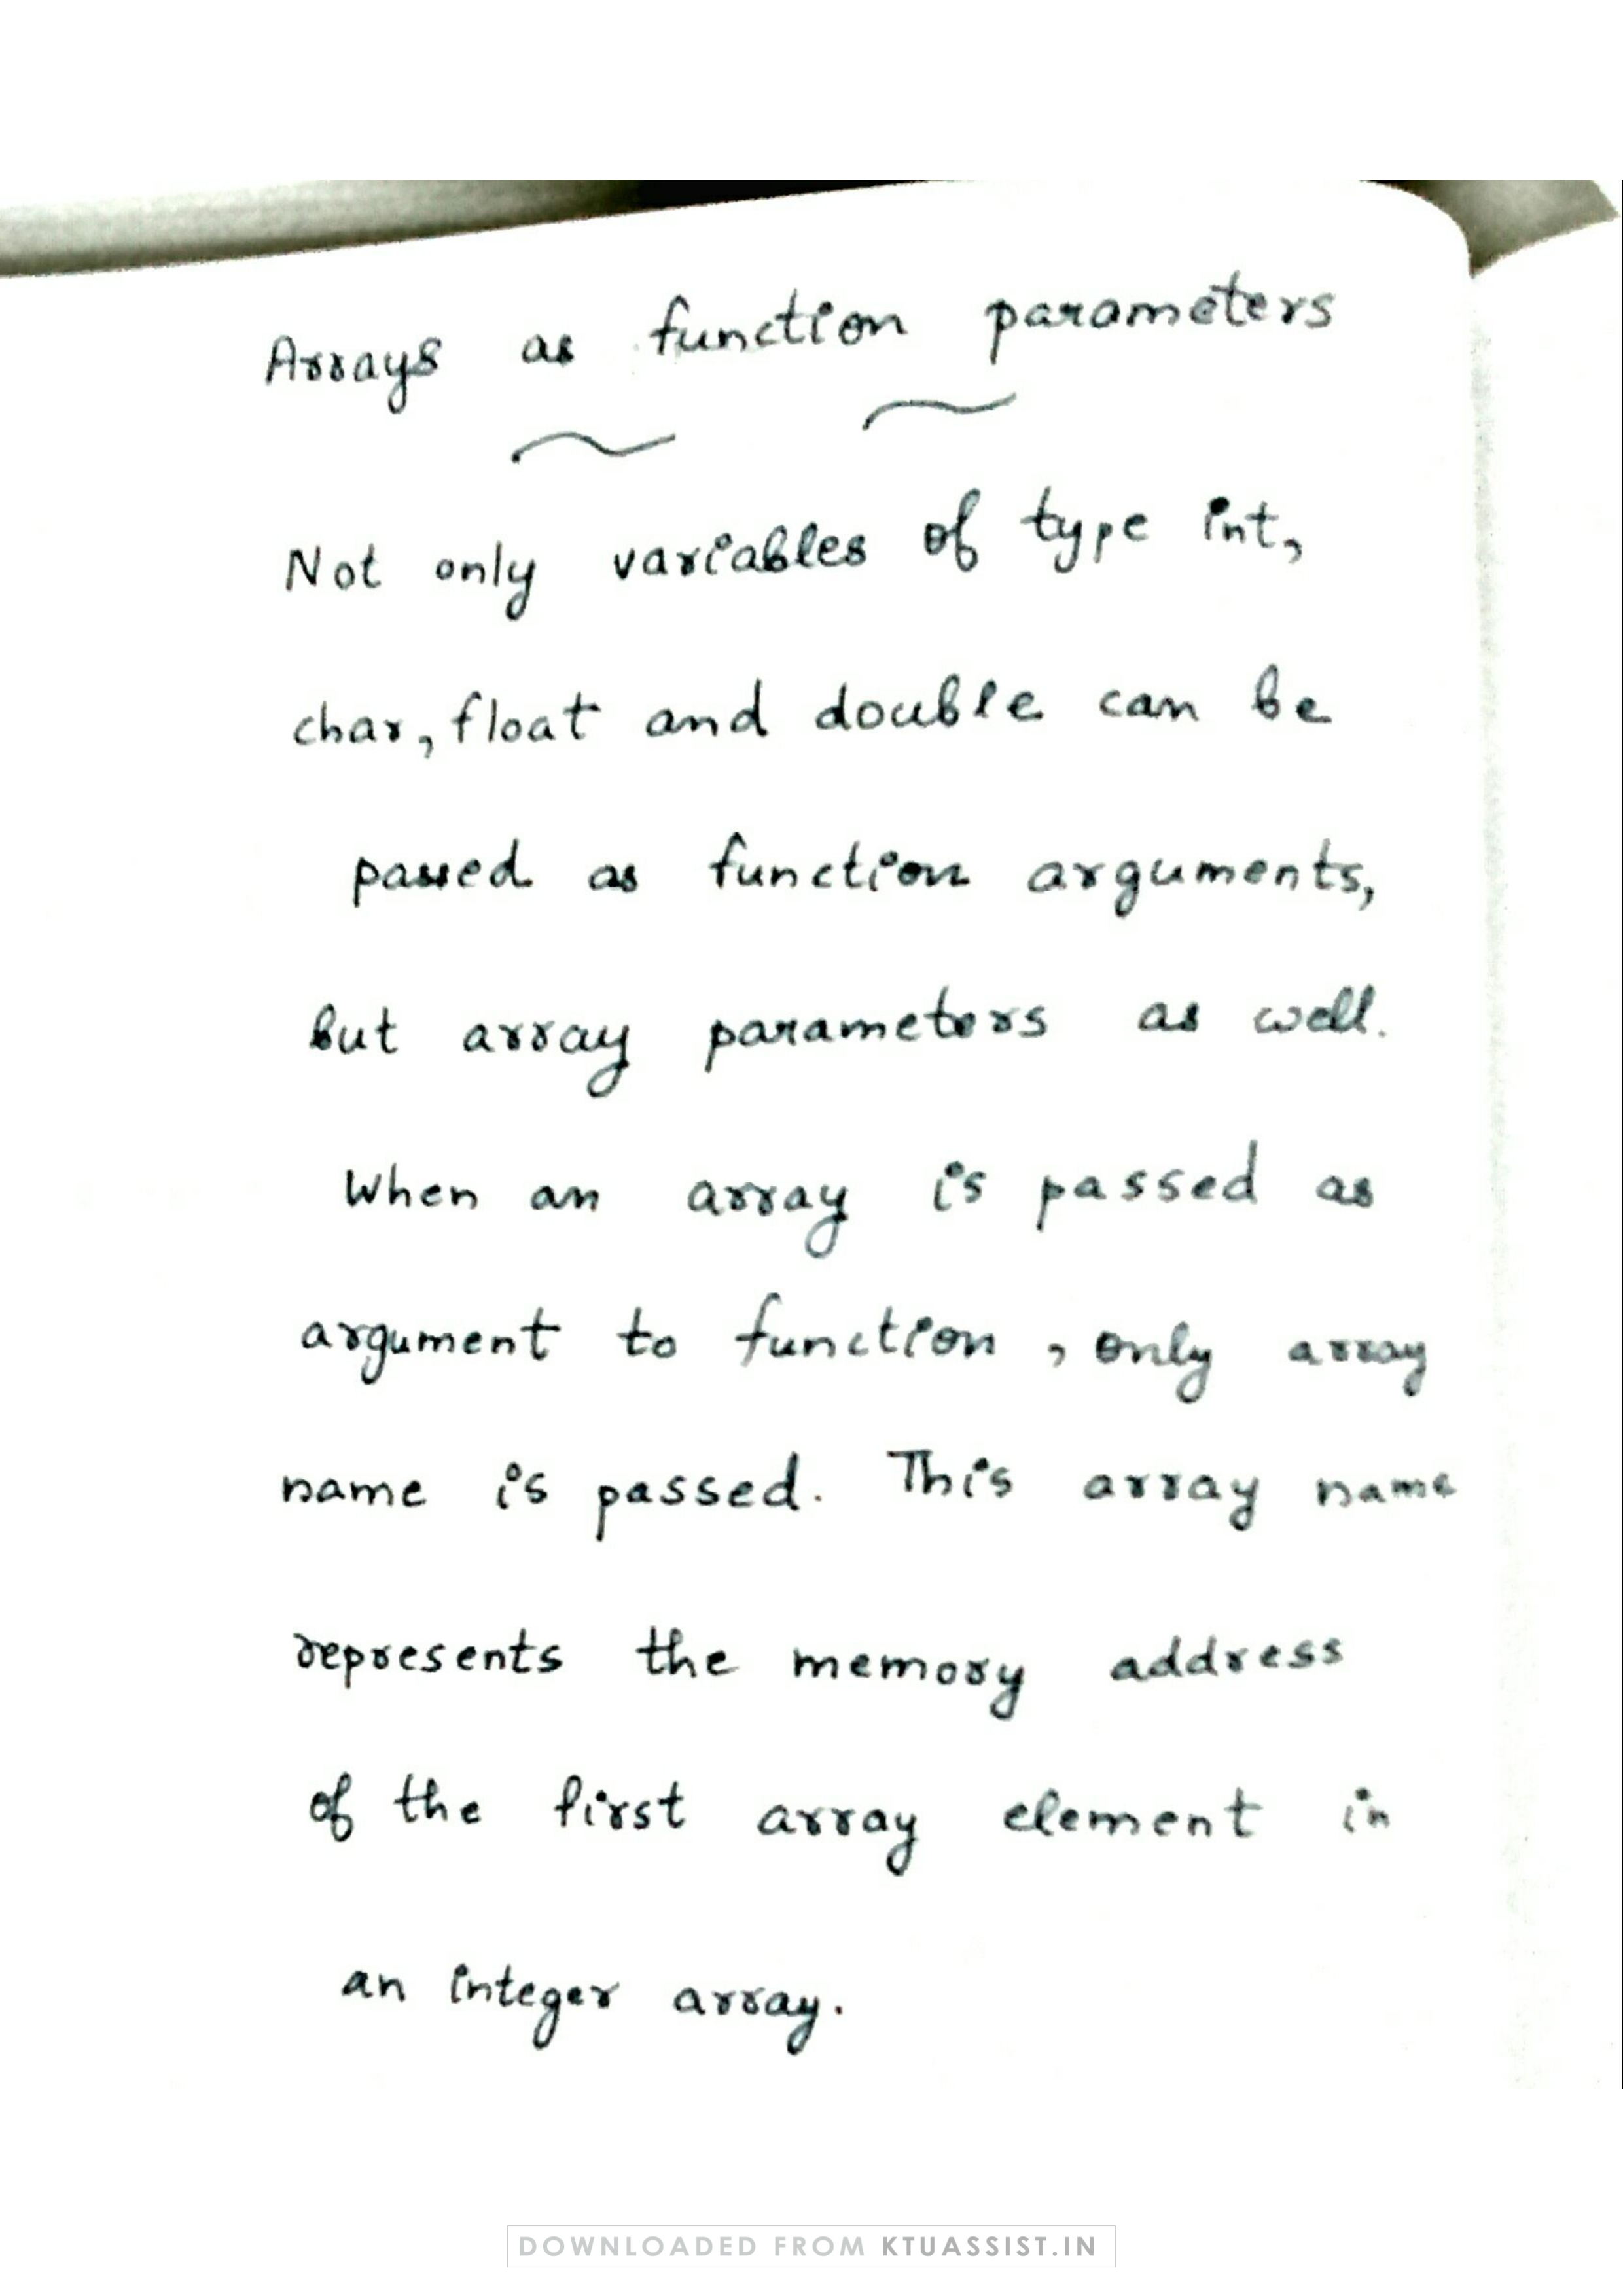 Arrays as function parameters
Not only variables of type int,
char, float and double can be
passed as function arguments,
but array parameters as well.
When an array is passed as
argument to function, only array
name is passed. This array name
represents the memory address
of the first array element in
an integer array.
DOWNLOADED FROM KTUASSIST.IN